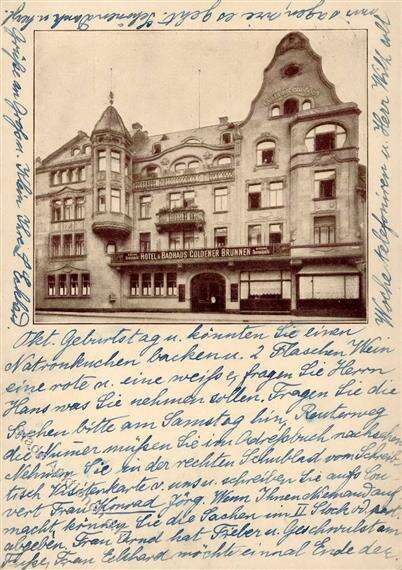 HOTEL & BADHAUS GOLDENER BRUNNEN
Okt. Geburtstag u. könnten Sie einen
Natronkuchen backen u. 2 Flaschen Wein
eine rote u. eine weiße, fragen Sie Herrn
Hans was Sie nehmen sollen. Fragen Sie die
Sachen bitte am Samstag hin, Reuterweg
die Numer müßen Sie im Adreßbuch nachsehen
Nehmen Sie in der rechten Schublad vom Schreib
tisch Visitenkarte v. uns u. schreiben Sie aufs Cou
vert Frau Konrad Jörg. Wenn Ihnen Niemand auf
macht, können Sie die Sachen im II Stock od. part.
abgeben. Frau Arnd hat Fieber u. Geschwulst am
Fuße, Frau Eckhard möchte einmal Ende der
Woche telefoniren u. Herr Will all
uns sagen, wie es geht. Schönen Dank u. herzl.
Grüße an Großen u. Klein Ihre L.